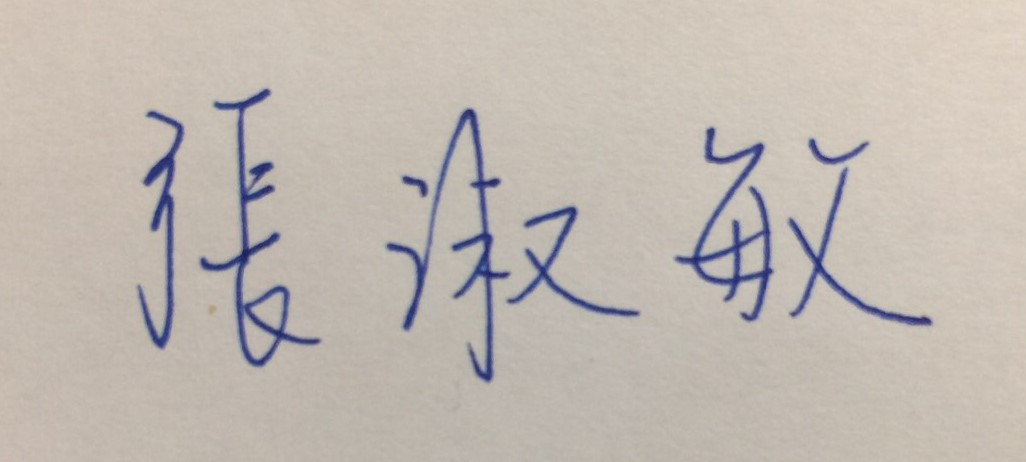 張淑敏